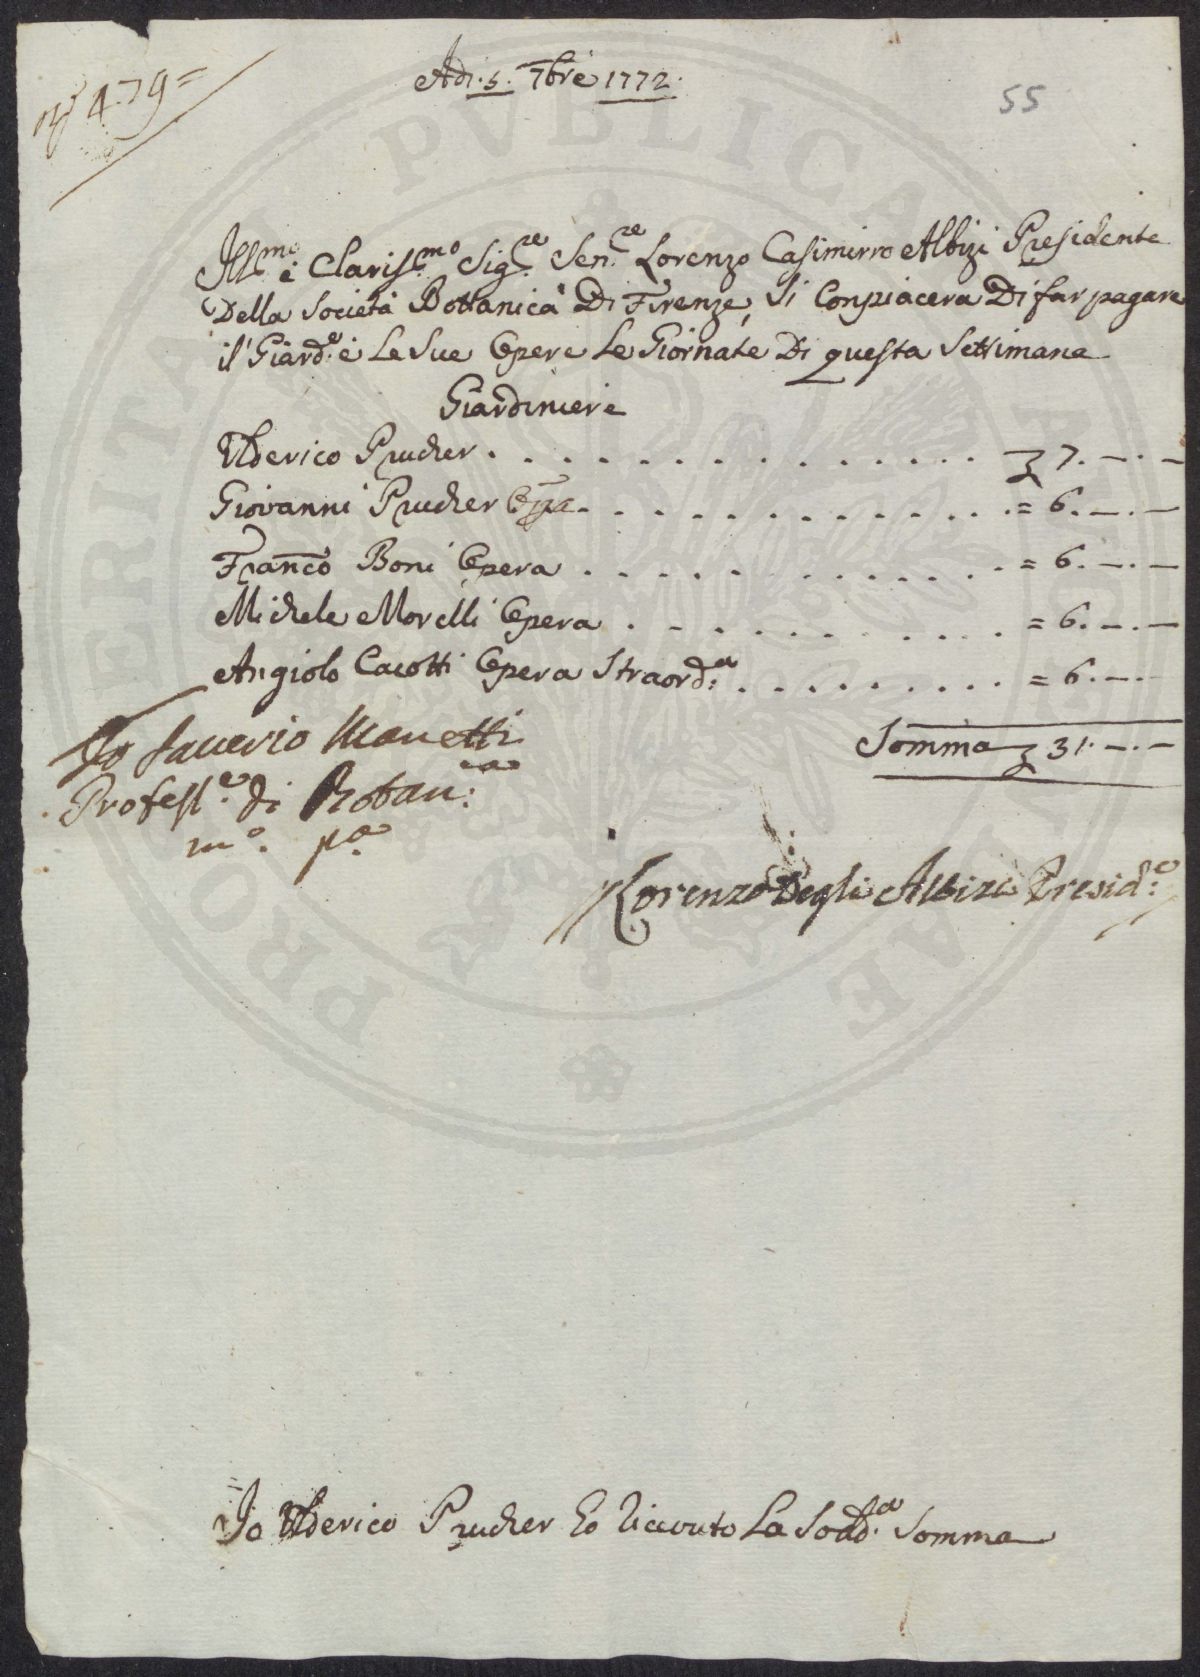 Adi. 5. 7bre 1772.
N° 479=
55
Ill.mo e Clariss.mo Sig.re Sen.re Lorenzo Casimirro Albizi Presidente
Della Società Bottanica Di Firenze, Si Conpiacera Di far pagare
il Giard.e e Le Sue Opere Le Giornate Di questa Settimana
Giardiniere
Ulderico Prucher . . . . . . . . . . . . . . . . 7. —. —
Giovanni Prucher Opa . . . . . . . . . . . . . . = 6. —. —
Franco Boni Opera . . . . . . . . . . . . . = 6. —. —
Michele Morelli Opera . . . . . . . . . . . . = 6. —. —
Angiolo Cacotti Opera Straord.a . . . . . . . . . = 6. —. —
Somma 31. —. —
Io Saverio Manetti
Profess.e di Botan:ca
m.o p.a
Lorenzo Degli Albizi Presid:e
Io Ulderico Prucher Ho Riceuto La Sodd.a Somma
PRO PVBLICAE